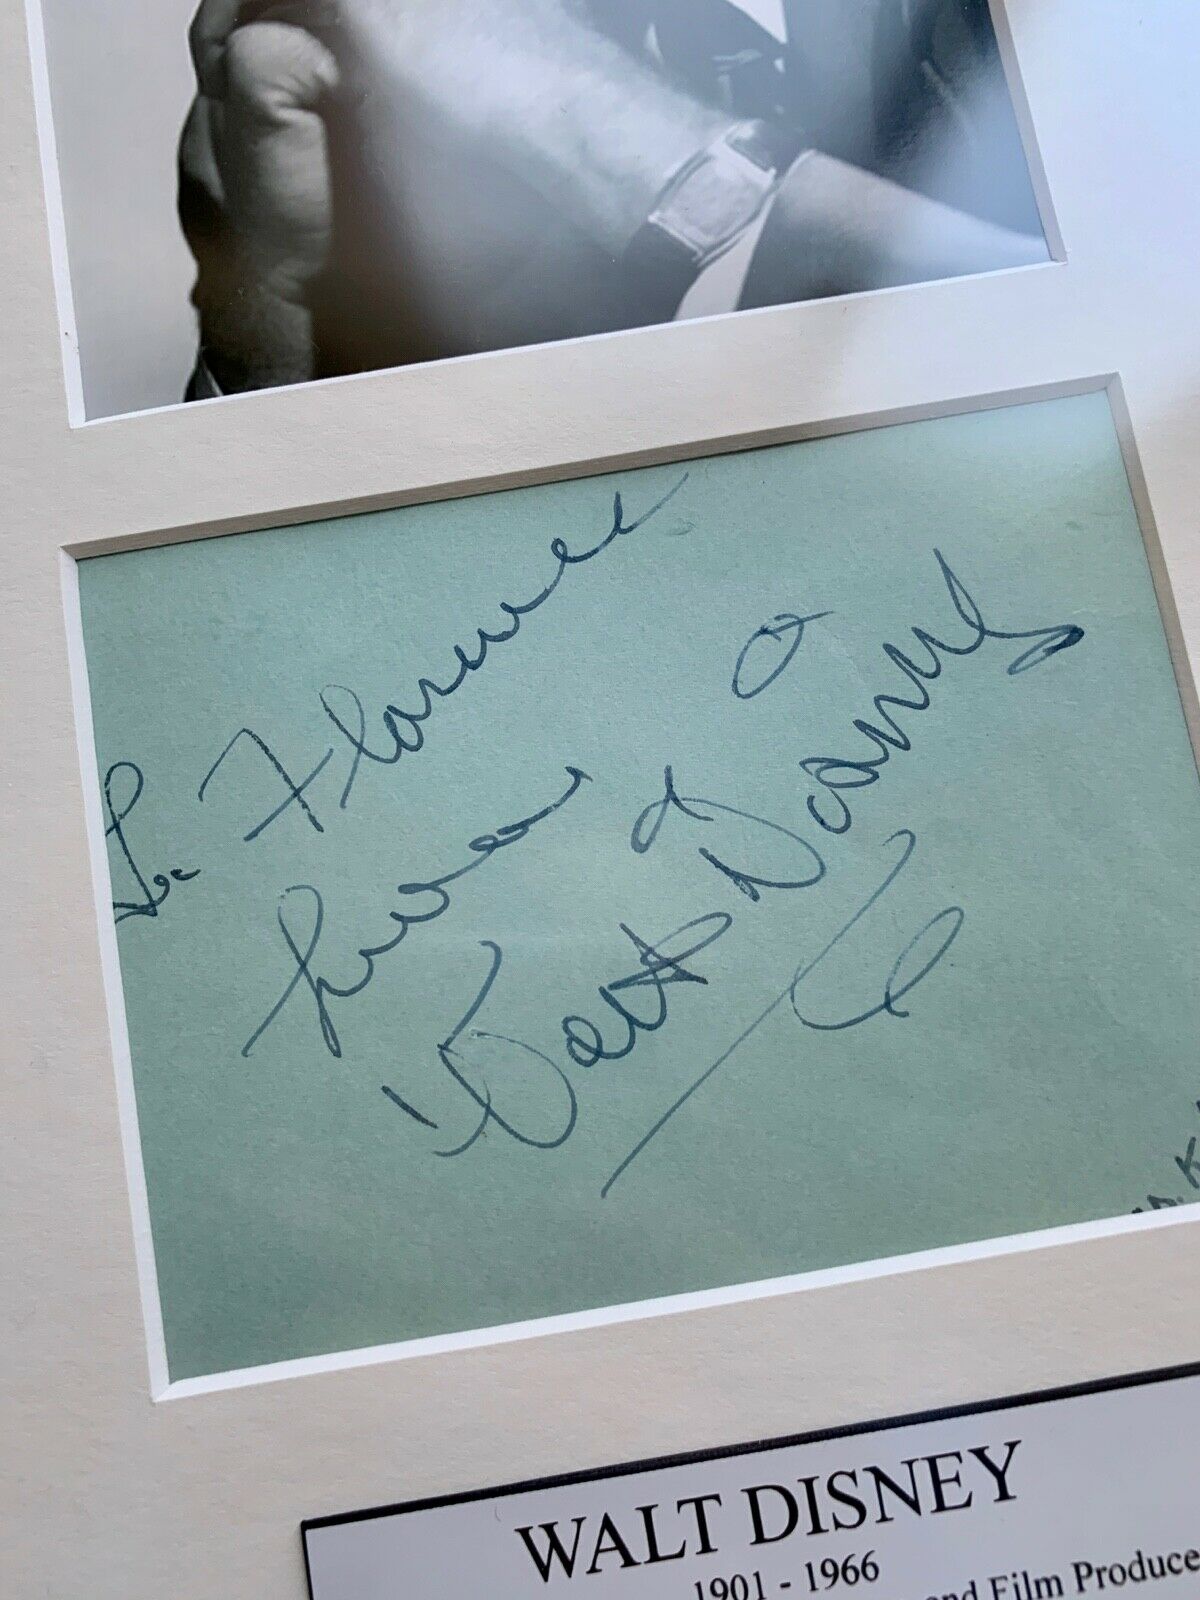 To Florence
from
Walt Disney
WALT DISNEY
1901 - 1966
and Film Produce